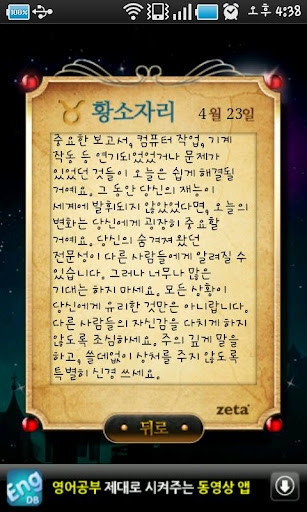 100%
오후 4:38
황소자리 4월 23일
중요한 보고서, 컴퓨터 작업, 기계
작동 등 연기되었었거나 문제가
있었던 것들이 오늘은 쉽게 해결될
거예요. 그 동안 당신의 재능이
세계에 발휘되지 않았었다면, 오늘의
변화는 당신에게 굉장히 중요할
거예요. 당신의 숨겨져 왔던
전문성이 다른 사람들에게 알려질 수
있습니다. 그러나 너무나 많은
기대는 하지 마세요. 모든 상황이
당신에게 유리한 것만은 아니랍니다.
다른 사람들의 자신감을 다치게 하지
않도록 조심하세요. 주의 깊게 말을
하고, 쓸데없이 상처를 주지 않도록
특별히 신경 쓰세요.
zeta
뒤로
Eng DB
영어공부 제대로 시켜주는 동영상 앱